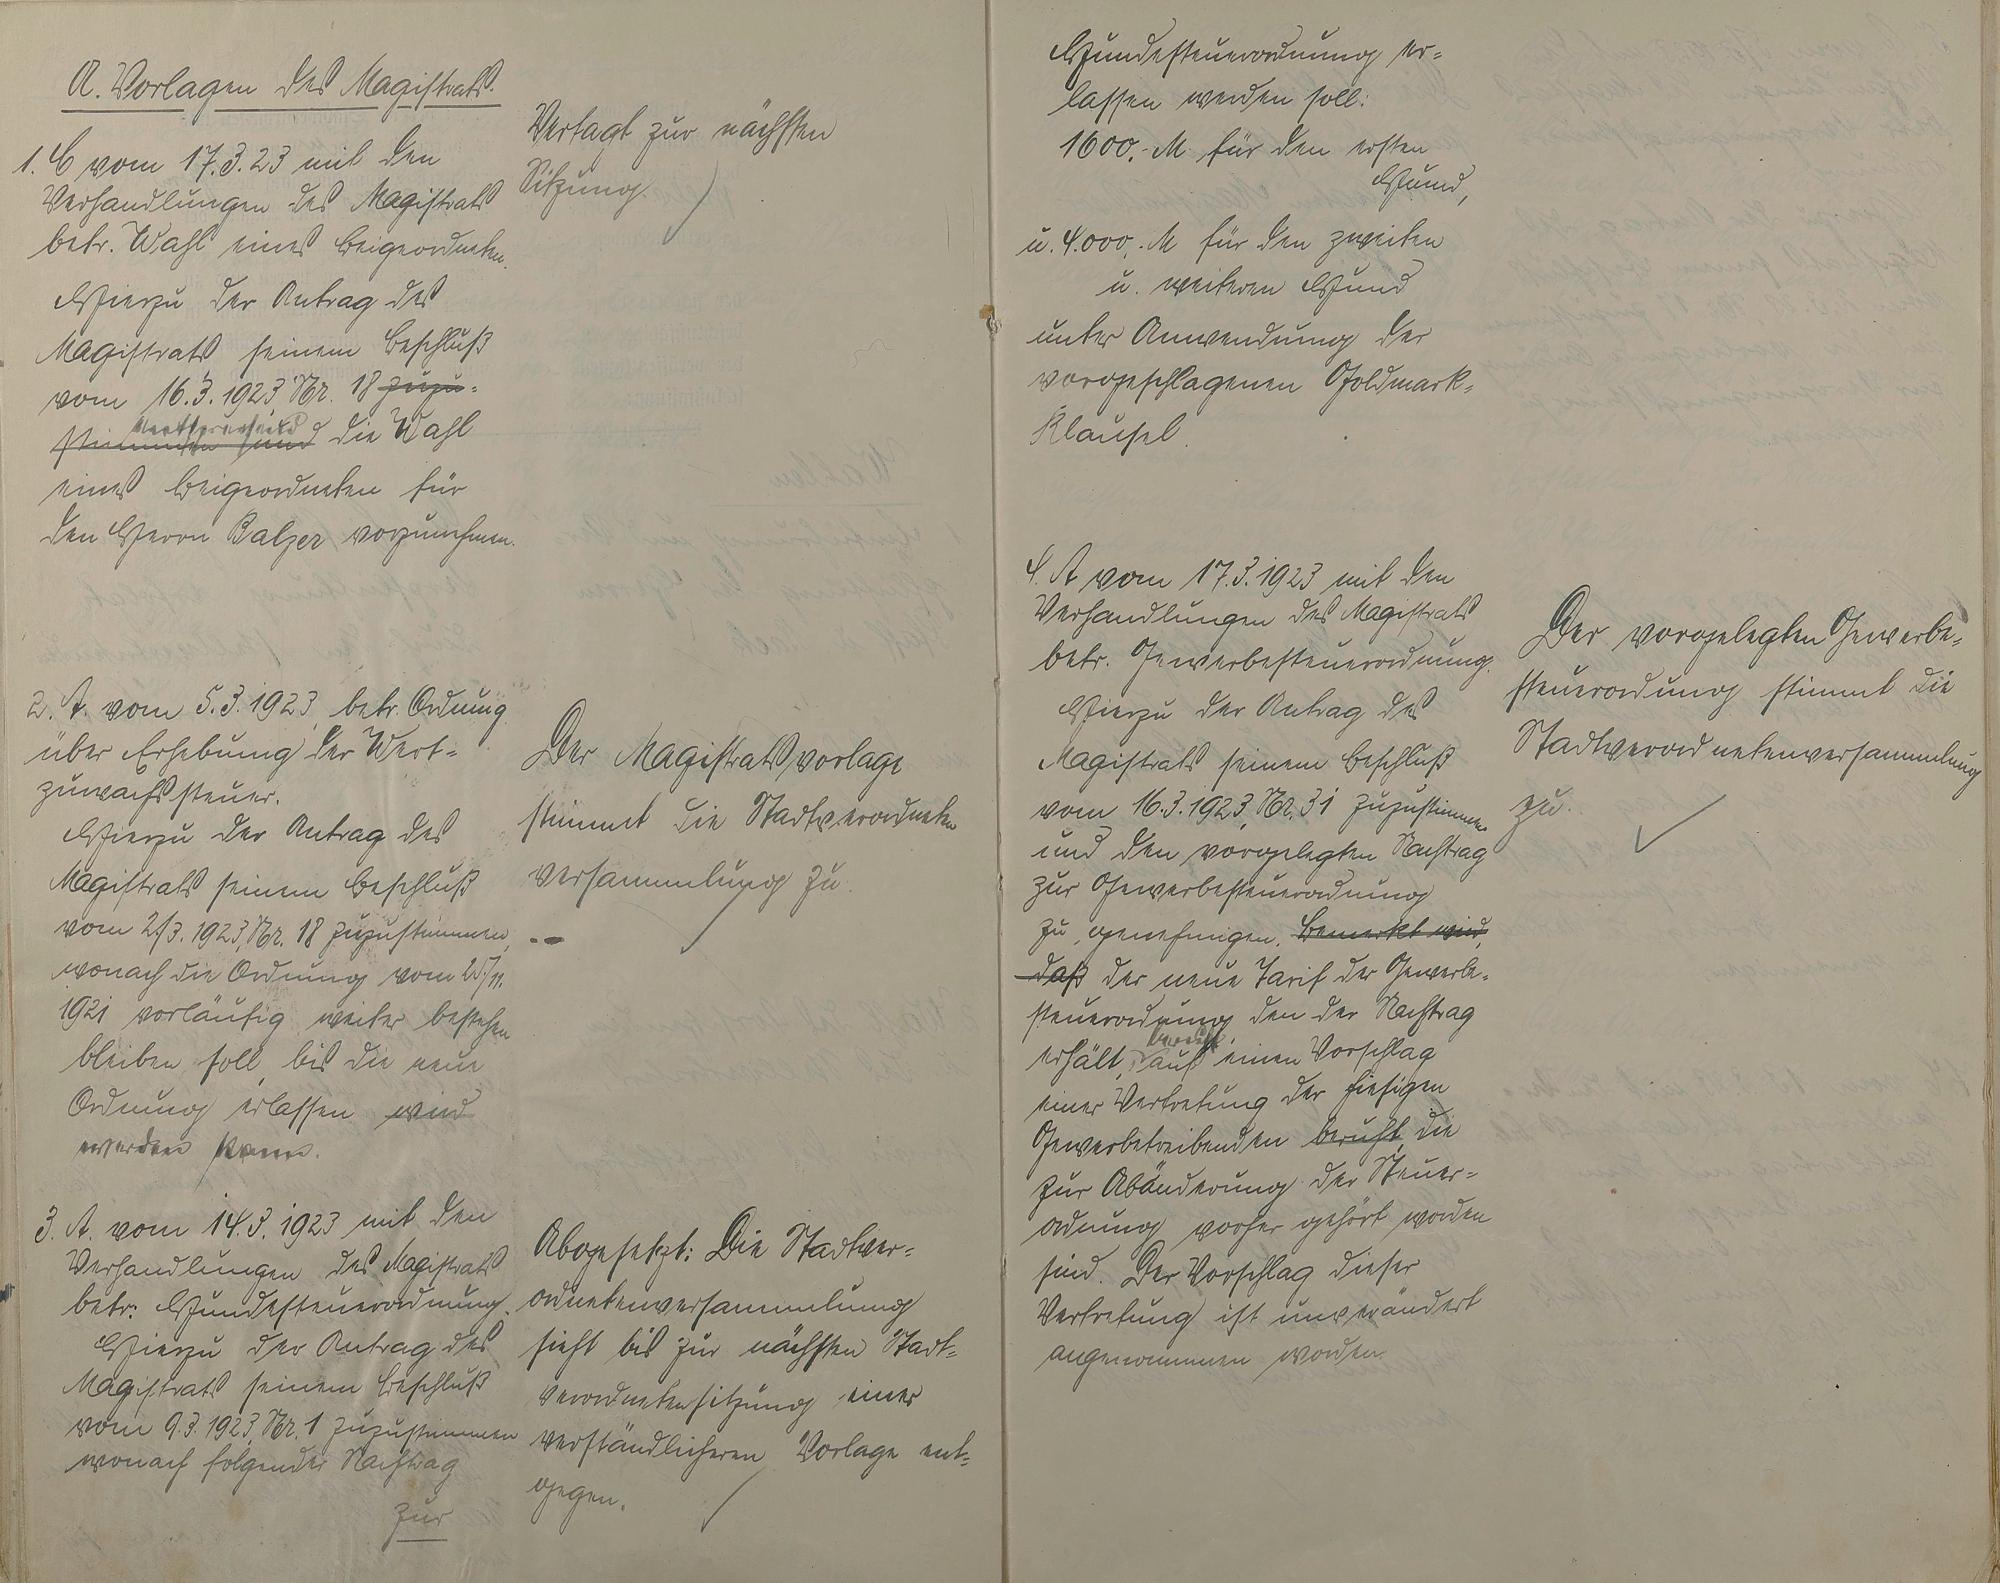 A. Vorlagen des Magistrats.
1. C vom 17.3.23 mit den
Verhandlungen des Magistrats
betr. Wahl eines Beigeordneten.
Hierzu der Antrag des
Magistrats seinem Beschluß
vom 16.3.1923 Nr. 18 zuzu-
stimmen und die Wahl
eines Beigeordneten für
den Herrn Balzer vorzunehmen.
Vertagt zur nächsten
Sitzung.
2. A. vom 5.3.1923, betr. Ordnung
über Erhebung der Wert-
zuwachssteuer.
Hierzu der Antrag des
Magistrats seinem Beschluß
vom 2/3. 1923, Nr. 18 zuzustimmen,
wonach die Ordnung vom 25/11.
1921 vorläufig weiter bestehen
bleiben soll, bis die neue
Ordnung erlassen wird
werden kann.
Der Magistratsvorlage
stimmt die Stadtverordneten
versammlung zu.
3. A. vom 14.3.1923 mit den
Verhandlungen des Magistrats
betr. Hundesteuerordnung.
Hierzu der Antrag des
Magistrats seinem Beschluß
vom 9.3.1923, Nr. 1 zuzustimmen
wonach folgender Nachtrag
zur
Abgesetzt: Die Stadtver-
ordnetenversammlung
sieht bis zur nächsten Stadt-
verordnetensitzung einer
verständlicheren Vorlage ent-
gegen.
Hundesteuerordnung er-
lassen werden soll:
1600,- M für den ersten
Hund,
u. 4.000,- M für den zweiten
u. weiteren Hund
unter Anwendung der
vorgeschlagenen Goldmark-
Klausel.
4. A vom 17.3.1923 mit den
Verhandlungen des Magistrats
betr. Gewerbesteuerordnung.
Hierzu der Antrag des
Magistrats seinem Beschluß
vom 16.3.1923, Nr. 31 zuzustimmen
und den vorgelegten Nachtrag
zur Gewerbesteuerordnung
zu genehmigen. Bemerkt wird,
daß der neue Tarif der Gewerbe-
steuerordnung den der Nachtrag
beruht
erhält, auf einen Vorschlag
einer Vertretung der hiesigen
Gewerbetreibenden beruht, die
zur Abänderung der Steuer-
ordnung vorher gehört worden
sind. Der Vorschlag dieser
Vertretung ist unverändert
angenommen worden.
Der vorgelegten Gewerbe-
steuerordnung stimmt die
Stadtverordnetenversammlung
zu.